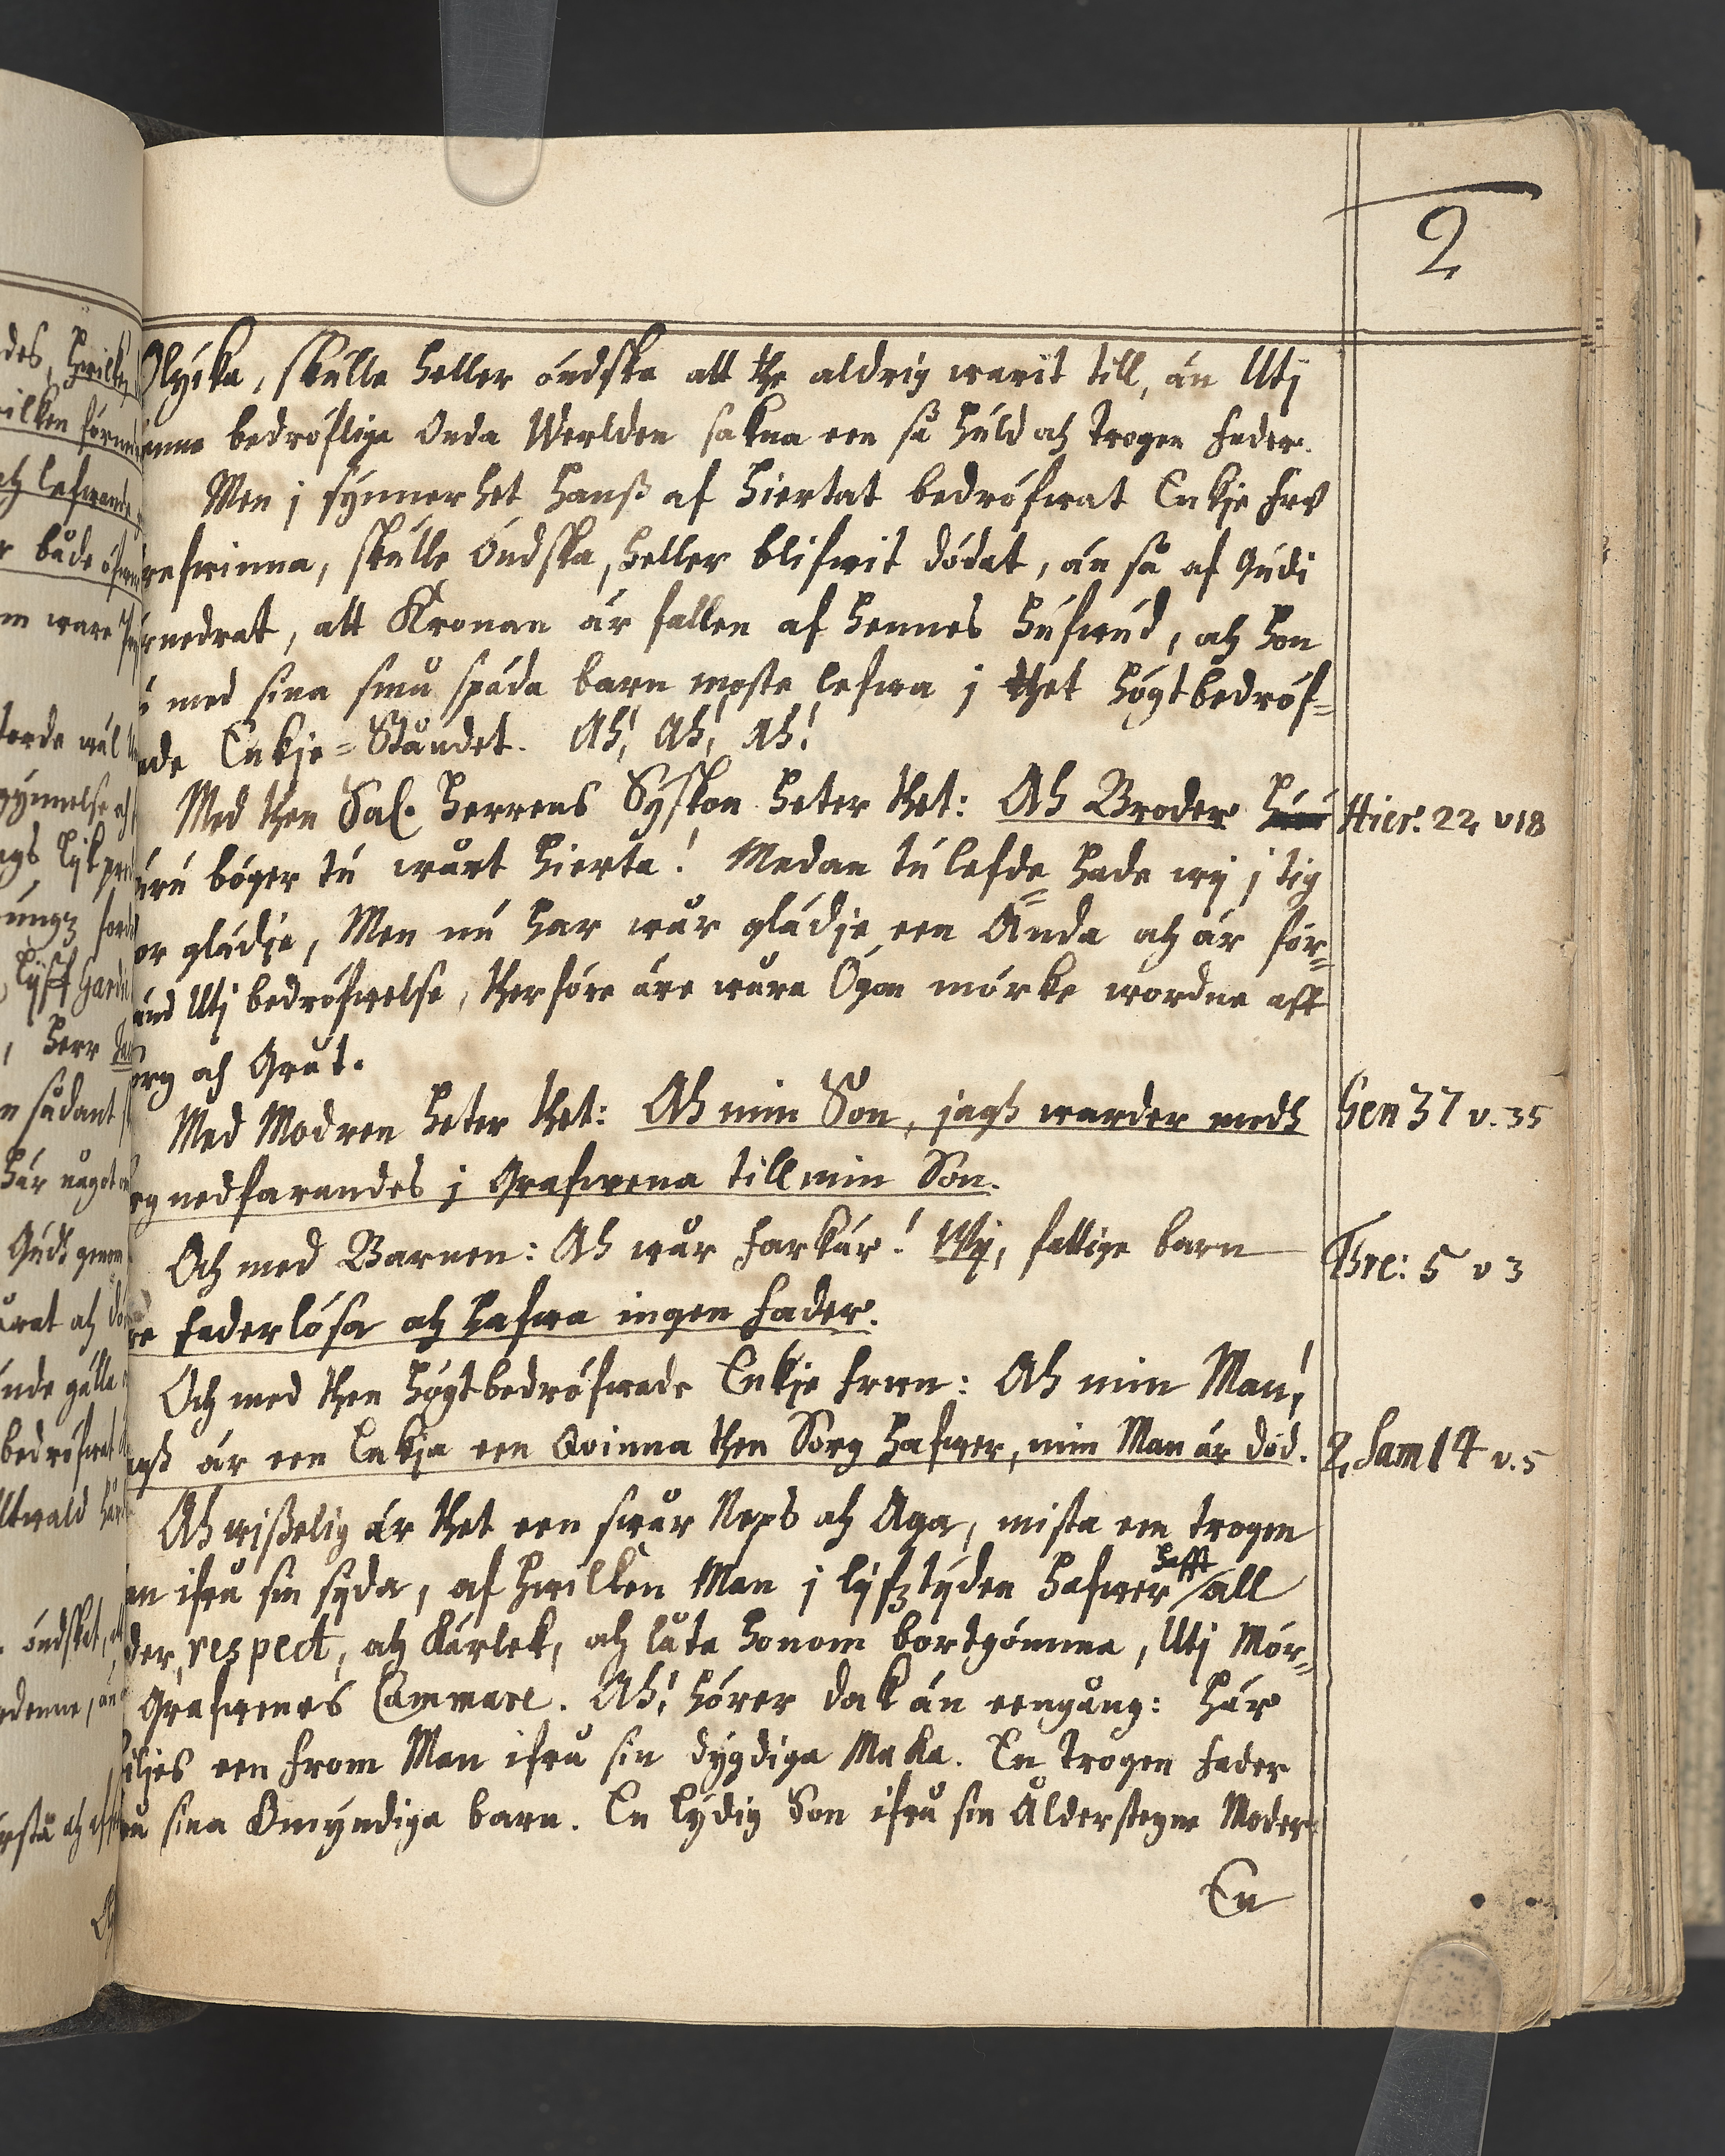 2
Olycka, skulle heller óndska att the aldrig warit till, án Utj
enna bedróflige Onda Werlden sakna een så huld och trogen fader.
Men j synnerhet hanß af hiertat bedrófwat Enkje fru
refwinna, skulle óndska, heller blifwit dódat, án så af Gudi
rnedrat, att Kronan ár fallen af hennes hufwud, och hon
med sina små spáda barn moste lefwa j thet hógtbedróf=
ade Enkje=Ståndet. Ah! Ah! Ah!
Med then Sal. Herrens Syskon heter thet: Ah Broder
Hier. 22 v 18
uru bóger tu wårt hierta! Medan tu lefde hade wij j tig
or gládje, Men nu har wår gládje een Ánda och ár fór=
ánd Utj bedrófwelse, therfóre áre wåra Ógon mórke wordne aff
org och Gråt.
Med Modren heter thet: Ah min Son, jagh warder medh
Gen 37 v. 35
rg nedfarandes j Grafwena till min Son.
Och med Barnen: Ah wår far kár! Wij, fattige barn
Thre: 5 v 3
re faderlósa och hafwa ingen fader.
Och med then hógtbedrófwade Enkje frun: Ah min Man!
agh ár een Enkja een Qvinna then Sorg hafwer, min Man ár dód.
2. Sam 14 v. 5
Ah wißelig ár thet een swår Neps och Aga, mista een trogen
an ifrå sin syda, af hwilken Man j lyfztyden hafwer hafft all
der, respect, och Kárlek, och låta honom bortgómma, Utj Mór=
Grafwenes Cammare. Ah! hórer dok án eengång: hár
iljes een from Man ifrå sin dygdiga Maka. En trogen fader
rå sina Omyndiga barn. En lydig Son ifrå sin Ålderstegne Moder.
En